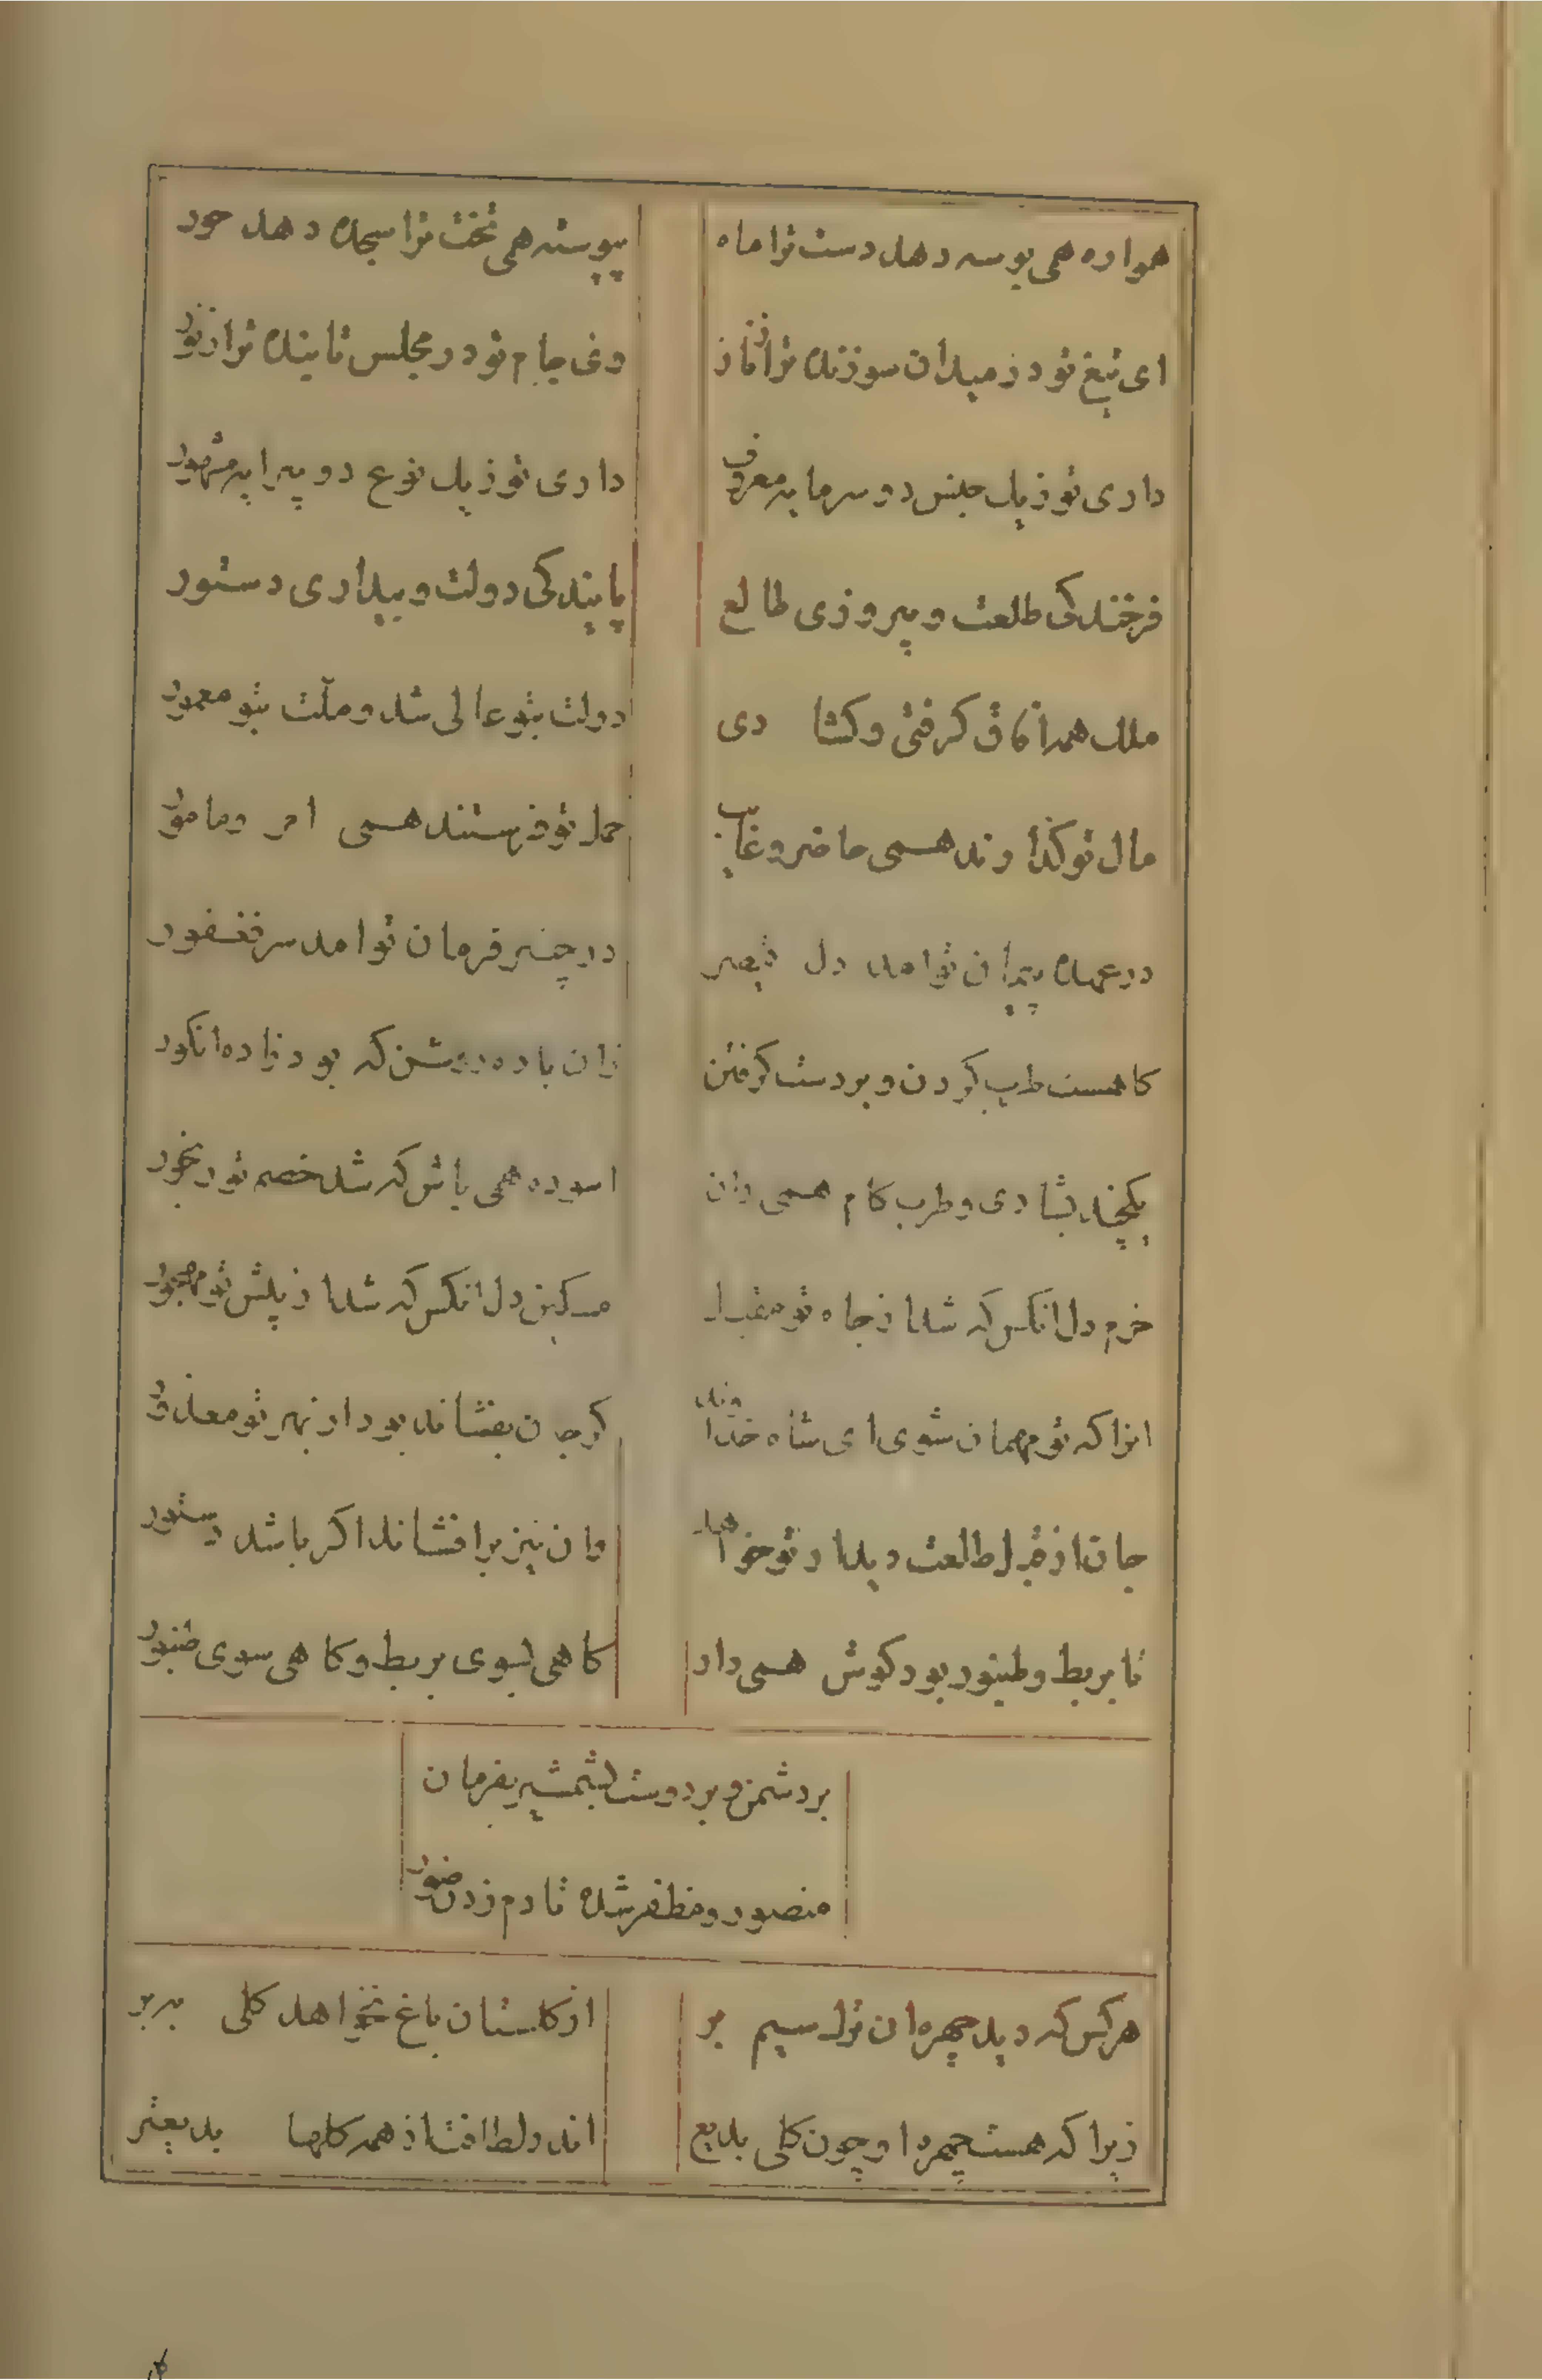 همواره همی بوسه دهد دست ترا ماه
پیوسته همی تخت ترا سجده دهد حور
ای تیغ تو در میدان سوزنده تر از نار
وی جام تو در مجلس تابنده تر از نور
داری تو ز یک جنس دو سرمایه معروف
داری تو ز یک نوع دو پیرایه مشهور
فرخندکی طلعت و پیروزی طالع
پایندکی دولت و بیداری دستور
ملک همه آفاق کرفتی و کشادی
دولت بتو عالی شد و ملّت بتو معمور
مال تو کذارند همی حاضر و غایب
حمل تو فرستند همی امر و مامور
در عهده پیمان تو امد دل قیصر
در چنبر فرمان تو امد سر فغفور
کاهست طرب کردن و بر دست کرفتن
زان باده روشن که بود زاده انکور
یکچند بشادی و طرب کام همی ران
اسوده همی باش که شد خصم تو رنجور
خرم دل انکس که شد از جاه تو مقبل
مسکین دل انکس که شد از پیش تو مهجور
انرا که تو مهمان شوی ای شاه خداوند
کر جان بفشاند بود از بهر تو معذور
جان از قبل طلعت دیدار تو خواهد
وان نیز برافشاند اکر باشد دستور
تا بربط و طنبور بود کوش همی دار
کاهی بسوی بربط و کاهی سوی طنبور
بر دشمن و بر دوست بشمشیر بفرمان
منصور و مظفر شده تا دم زدن صور
هر کس که دید چهره ان ترک سیم بر
از کلستان باغ نخواهد کلی ببر
زیرا که هست چهره او چون کلی بدیع
اندر لطافت از همه کلها بدیعتر